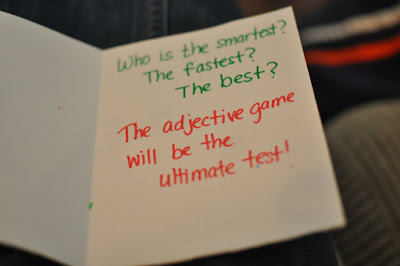 Who is the smartest?
The fastest?
The best?
The adjective game
will be the
ultimate test!